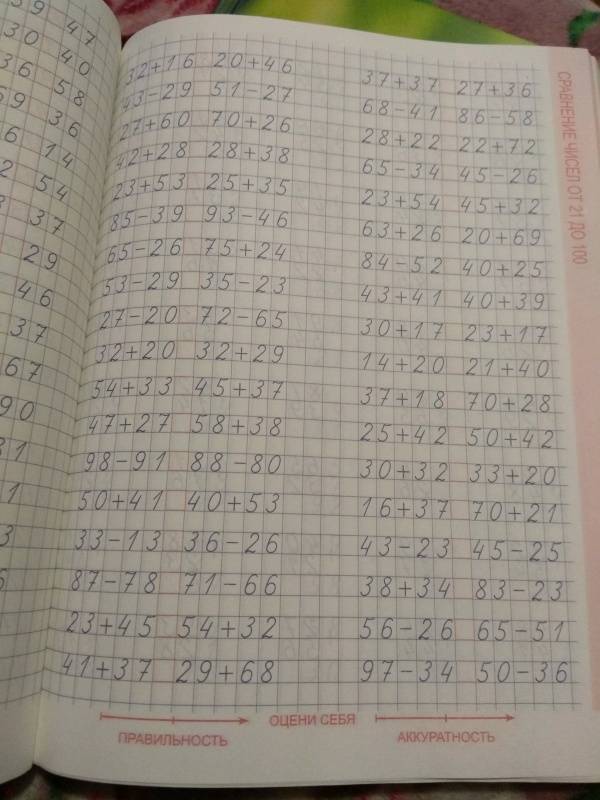 59 47
30 40
36 58
59 36
6 14
2 54
37
29
46
37
67
90
31
1
3
5
32+16 20+46
43-29 51-27
27+60 70+26
42+28 28+38
23+53 25+35
85-39 93-46
65-26 75+24
53-29 35-23
27-20 72-65
32+20 32+29
54+33 45+37
47+27 58+38
98-91 88-80
50+41 40+53
33-13 36-26
87-78 71-66
23+45 54+32
41+37 29+68
37+37 27+36
68-41 86-58
28+22 22+72
65-34 45-26
23+54 45+32
63+26 20+69
84-52 40+25
43+41 40+39
30+17 23+17
14+20 21+40
37+18 70+28
25+42 50+42
30+32 33+20
16+37 70+21
43-23 45-25
38+34 83-23
56-26 65-51
97-34 50-36
СРАВНЕНИЕ ЧИСЕЛ ОТ 21 ДО 100
ОЦЕНИ СЕБЯ
ПРАВИЛЬНОСТЬ АККУРАТНОСТЬ